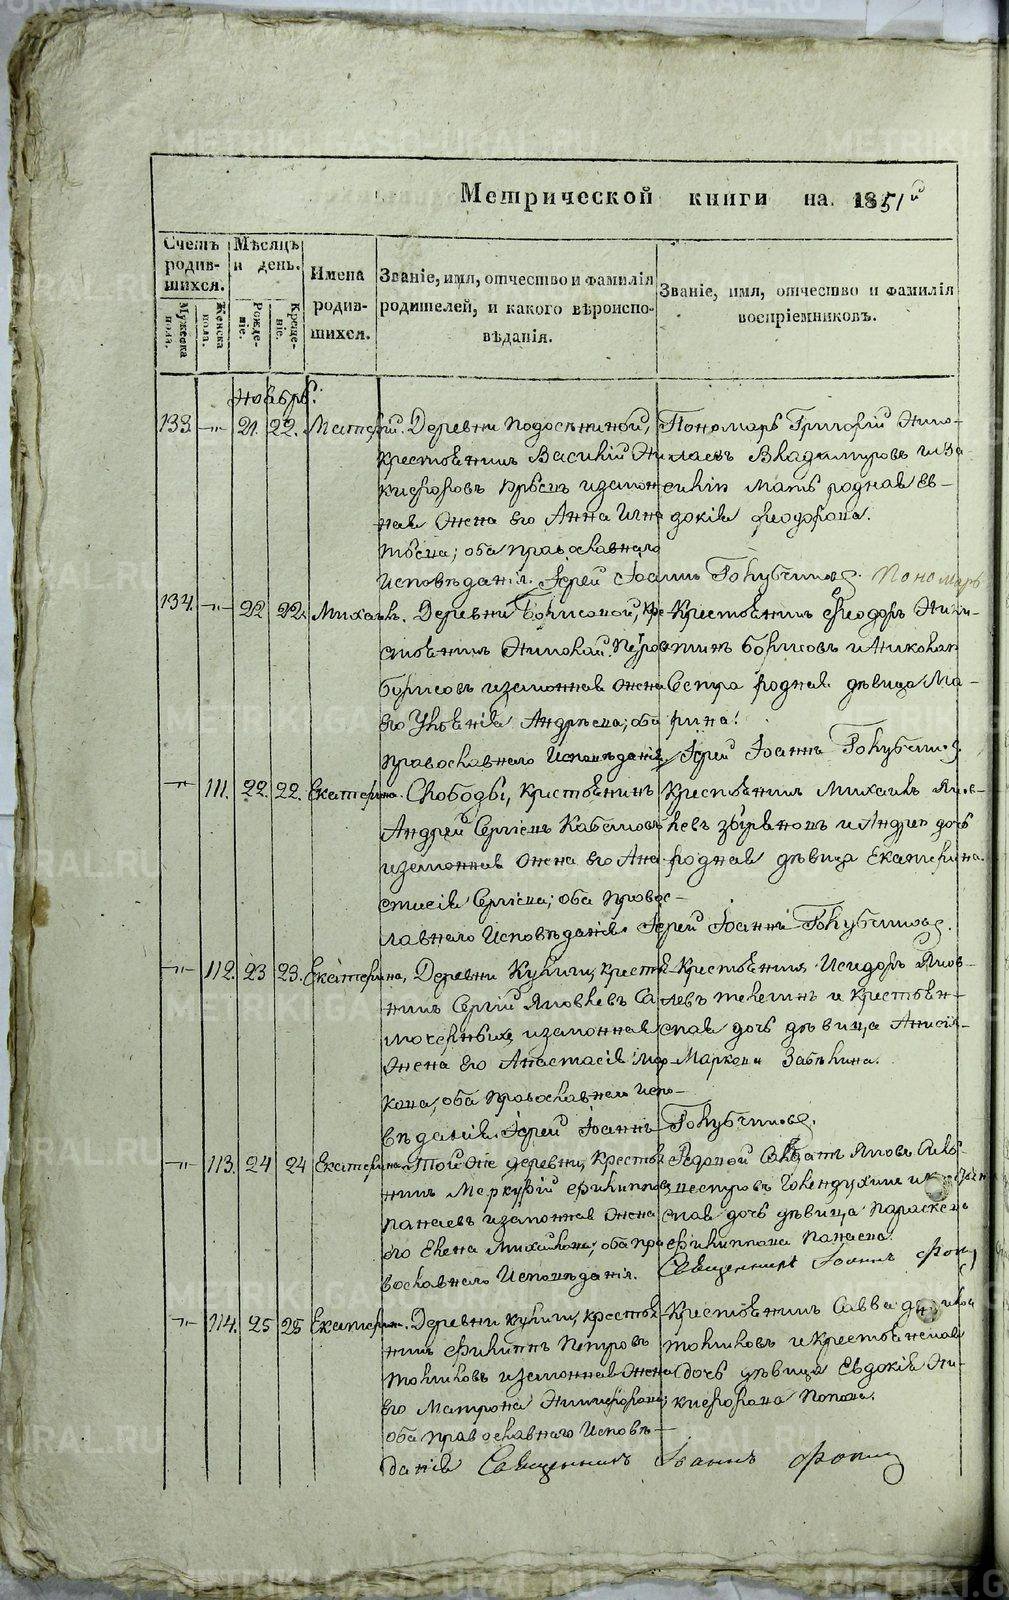 Метрической книги на 1851й
Счетъ родив-шихся.
Мужеска пола.
Женска пола.
Мѣсяцъ и день.
Рожде-ніе.
Креще-ніе.
Имена родив-шихся.
Званіе, имя, отчество и фамилія родителей, и какого вѣроиспо-вѣданія.
Званіе, имя, отчество и фамилія воспріемниковъ.
Ноябрь.
133. -"- 21. 22. Матфій. Деревни Подосениной,
крестьянинъ Василій Ни
кифоровъ и закон
ная жена его Анна Игна
тьева; оба православнаго
исповѣданія. Іерей Іоаннъ Голубчиковъ. Пономарь
Пономарь Григорій Нико-
лаевъ Владимуровъ и
мать родная Ев-
докія Феодорова.
134. -"- 22 22. Михаилъ. Деревни Борисовой, кре
стьянинъ Николай Петров
Борисовъ и законная жена
его Ульянія Андрѣева; оба
православнаго исповѣданія
Крестьянинъ Феодоръ Ники-
тинъ Борисовъ и Николая
сестра родная дѣвица Ма-
рина.
Іерей Іоаннъ Голубчиковъ
-"- 111. 22. 22. Екатерина. Слободы, крестьянинъ
Андрей Сергіевъ Кабаковъ
и законная жена его Ана
стасія Сергіева; оба право-
славнаго исповѣданія. Іерей Іоаннъ Голубчиковъ.
Крестьянинъ Михаилъ Яков-
левъ и Андрея дочь
родная дѣвица Екатерина.
-"- 112. 23 23. Екатерина, Деревни Кулиги, крестья
нинъ Сергій Яковлевъ Са
моченныхъ и законная
жена его Анастасія Мар
кова, оба православнаго испо-
вѣданія. Іерей Іоаннъ Голубчиковъ.
Крестьянинъ Исидоръ Яков-
левъ Телегинъ и крестьян-
ская дочь дѣвица Анисія
Маркова Забѣлина.
-"- 113. 24 24 Екатерина Той же деревни, крестья
нинъ Меркурій Филиппов
Панаевъ и законная жена
его Елена Михайлова; оба пра
вославнаго исповѣданія.
Рядовой Солдатъ Яковъ
и крестьян
ская дочь дѣвица Параскева
Филиппова Панаева.
Священникъ Іоаннъ
-"- 114. 25 25 Екатерин. Деревни Кулиги, крестья
нинъ Филиппъ Петровъ
Толмиковъ и законная жена
его Матрона Никифорова;
оба православнаго исповѣ-
данія Священникъ Іоаннъ
Крестьянинъ Савва
и крестьянская
дочь дѣвица Евдокія Ни-
кифорова Попова.